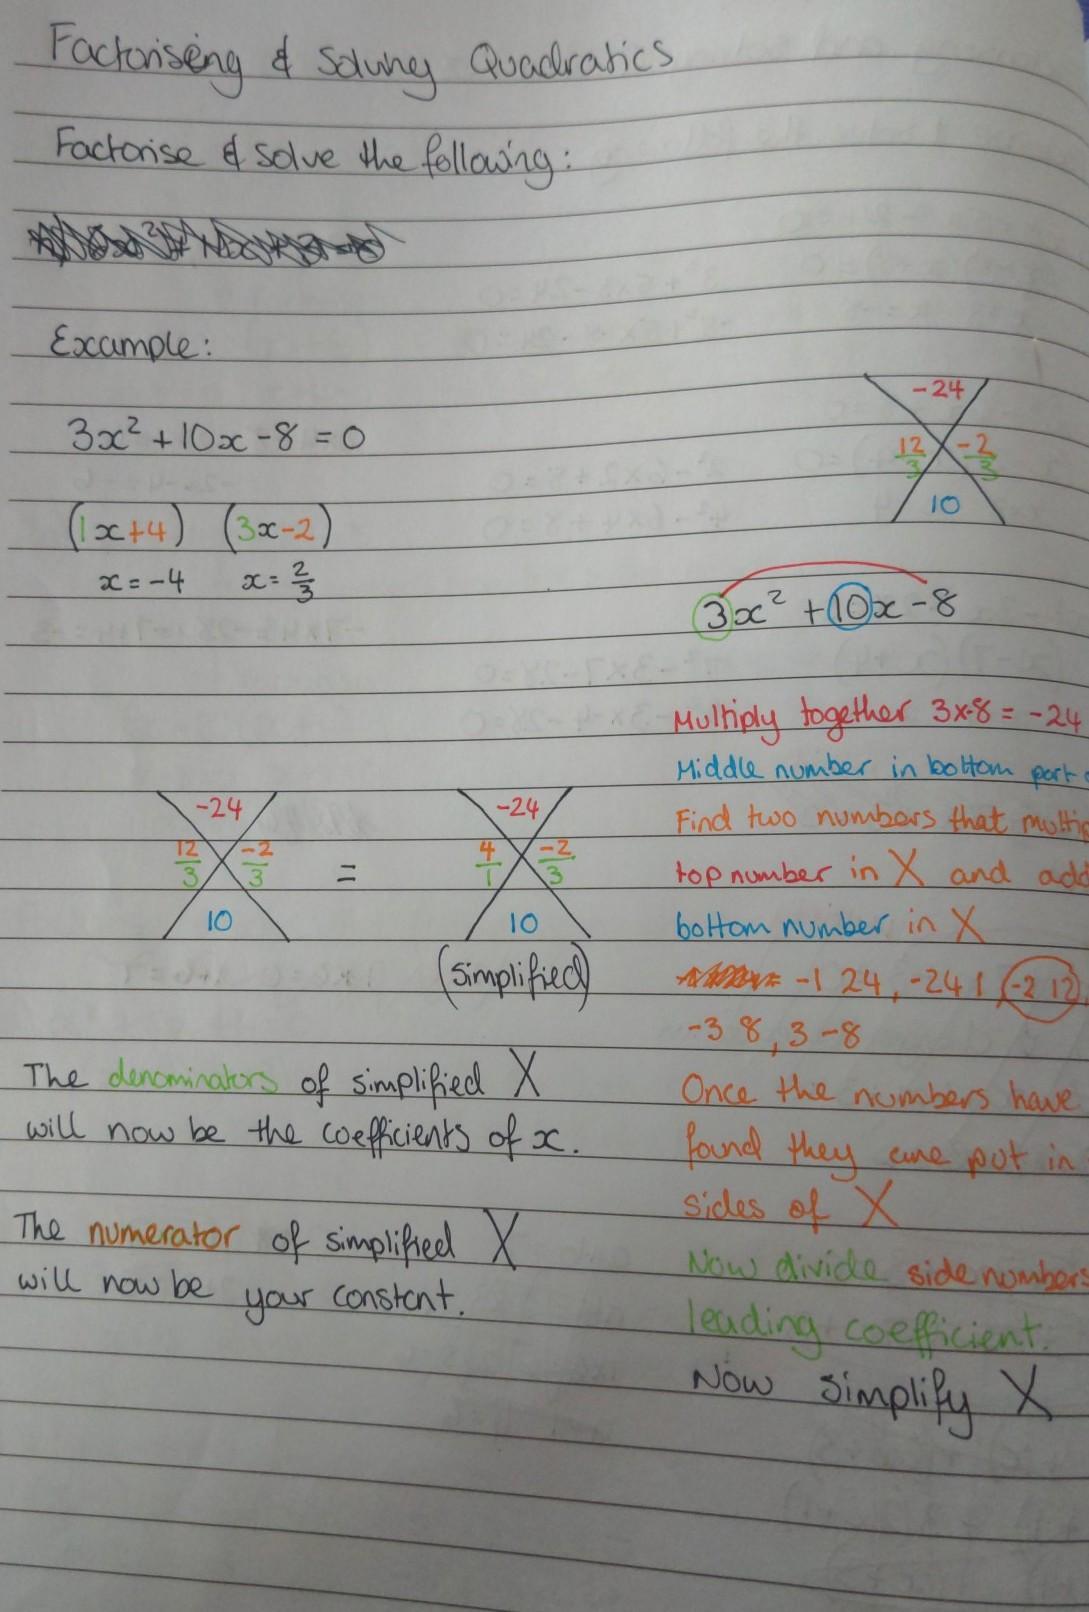 Factorising & Solving Quadratics
Factorise & solve the following:
Example:
3x² + 10x - 8 = 0
(1x+4) (3x-2)
x = -4 x = 2/3
-24
12/3 -2/3
10
3x² + 10x - 8
Multiply together 3x-8 = -24
Middle number in bottom part
Find two numbers that
top number in X and add
bottom number in X
-1 24, -24 1, -2 12,
-3 8, 3 -8
Once the numbers have
found they are put in
sides of X
Now divide side numbers
leading coefficient.
Now simplify X
-24
12/3 -2/3
10
=
-24
4/1 -2/3
10
(simplified)
The denominators of simplified X
will now be the coefficients of x.
The numerator of simplified X
will now be your constant.